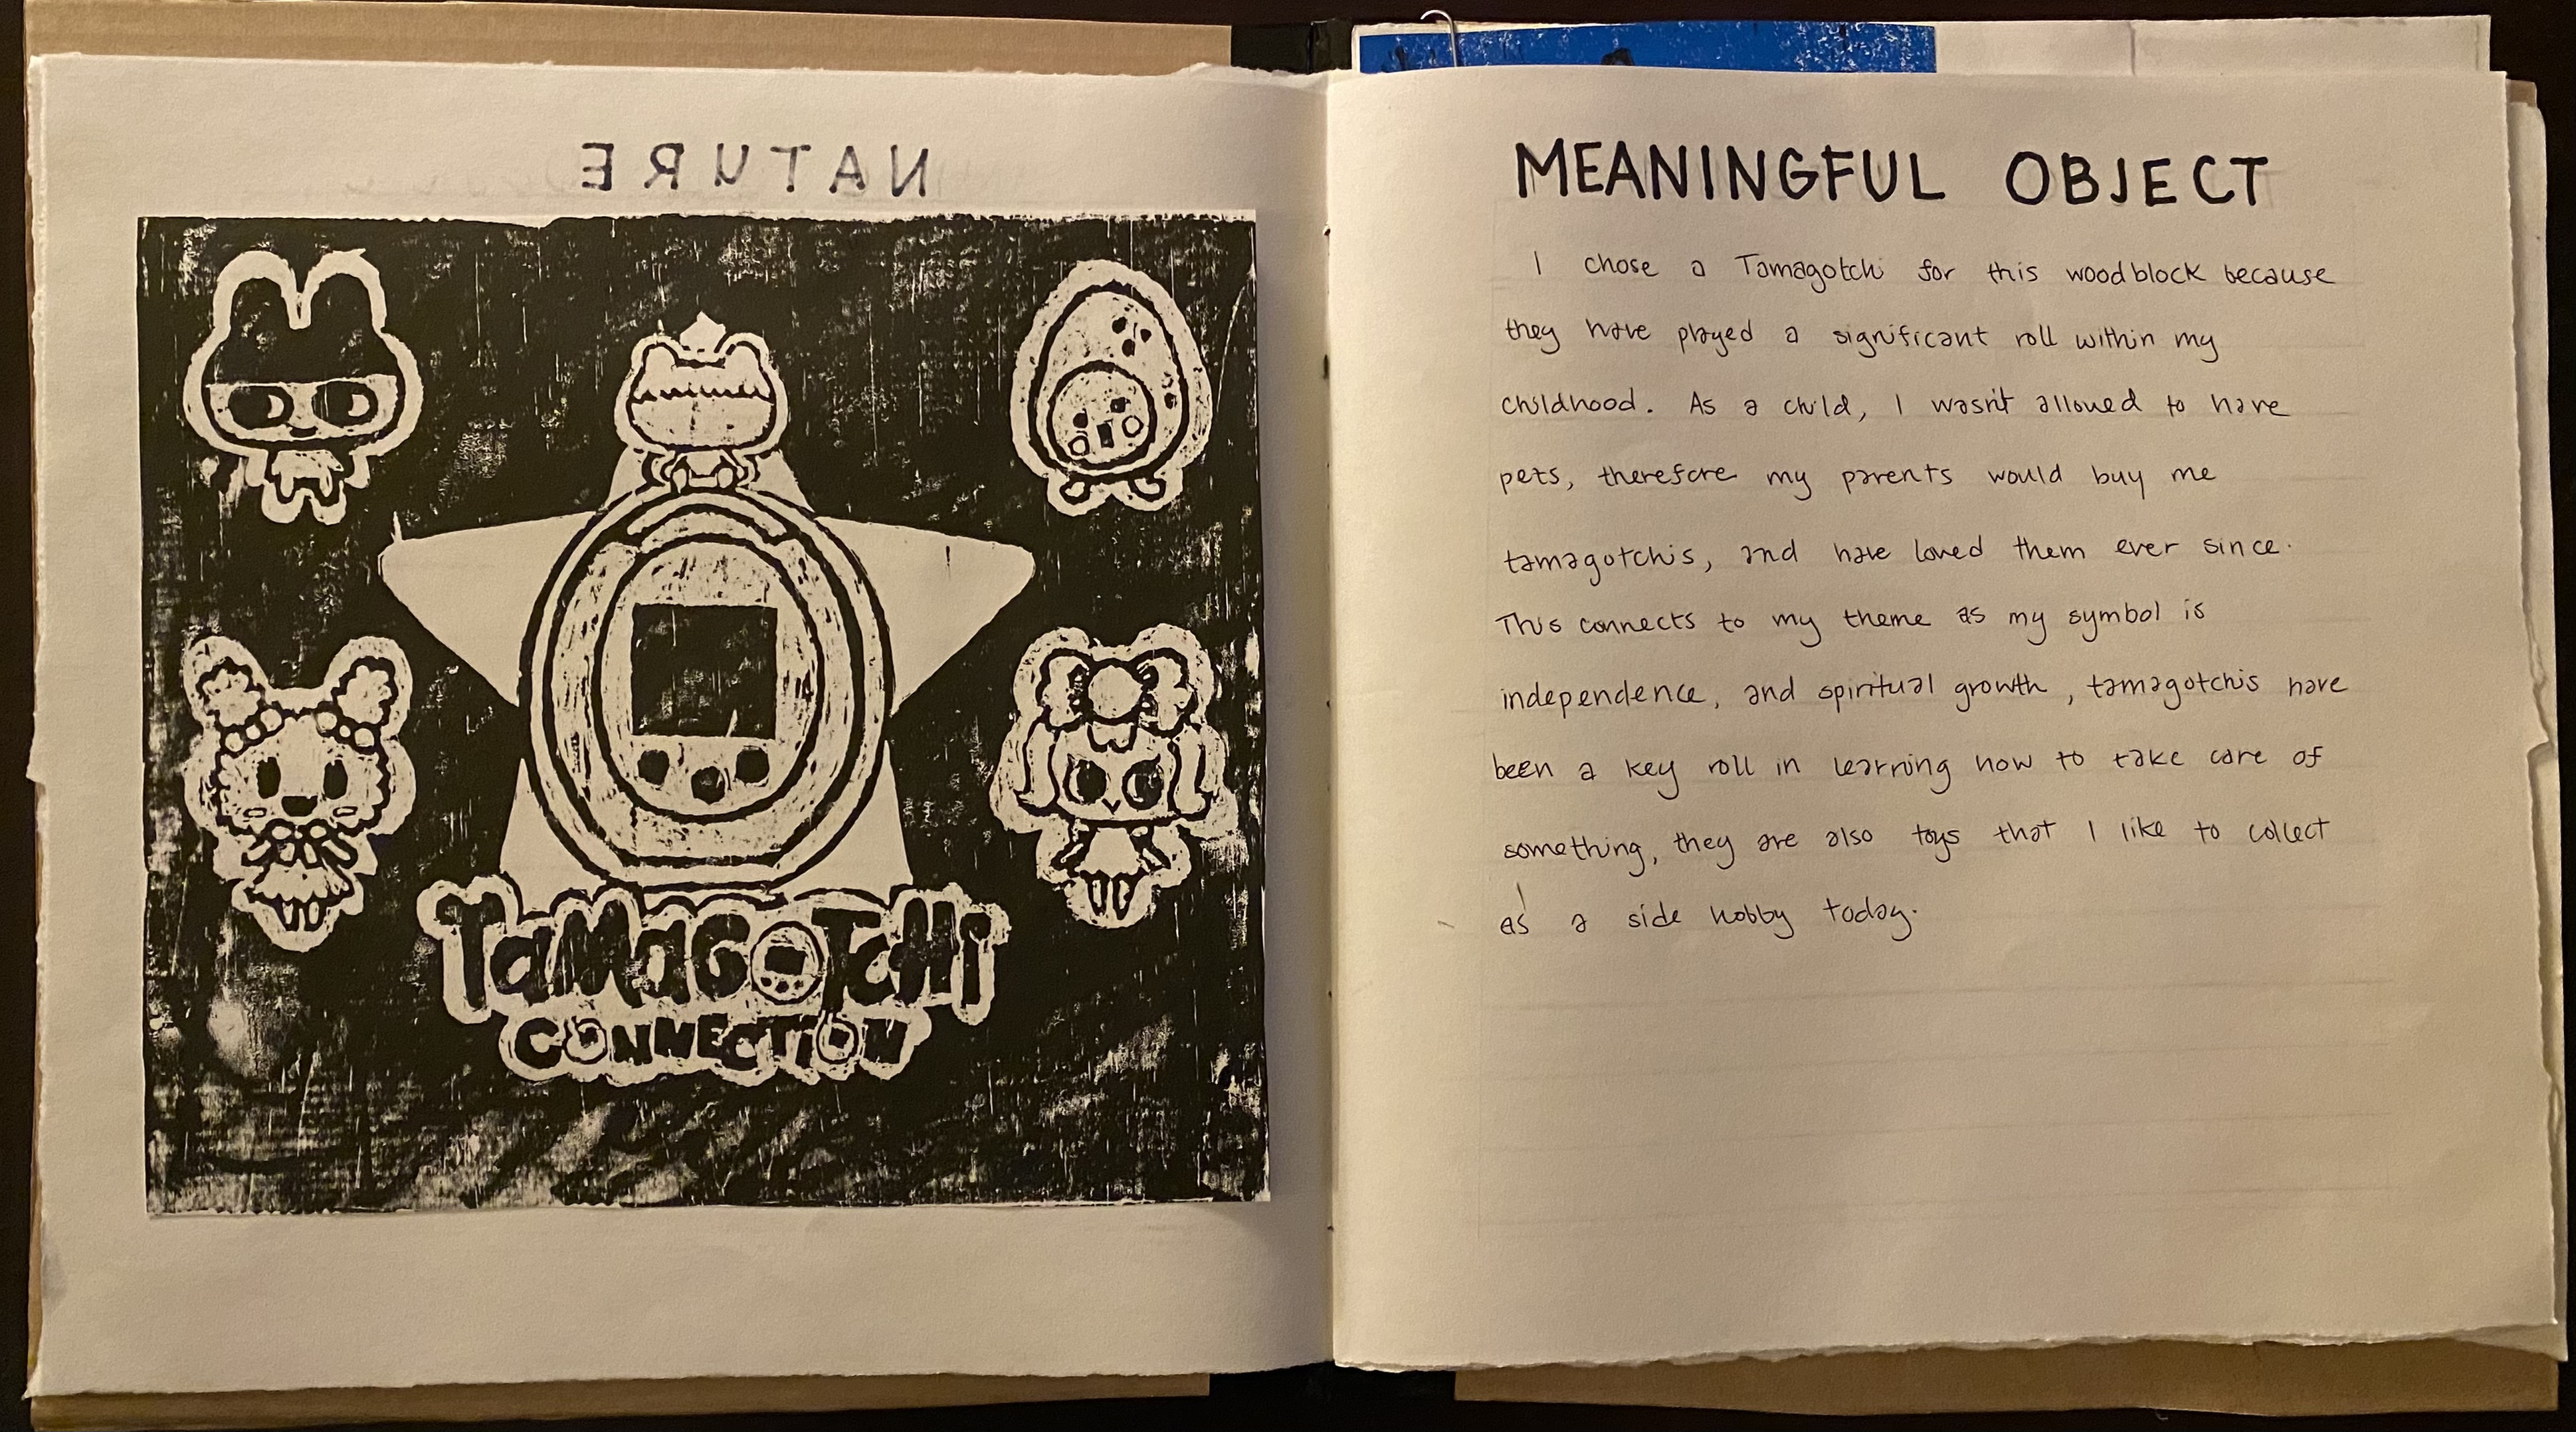 NATURE
TaMaGoTcHi
CONNECTION
MEANINGFUL OBJECT
I chose a Tamagotchi for this woodblock because
they have played a significant roll within my
childhood. As a child, I wasn't allowed to have
pets, therefore my parents would buy me
tamagotchis, and have loved them ever since.
This connects to my theme as my symbol is
independence, and spiritual growth, tamagotchis have
been a key roll in learning how to take care of
something, they are also toys that I like to collect
as a side hobby today.